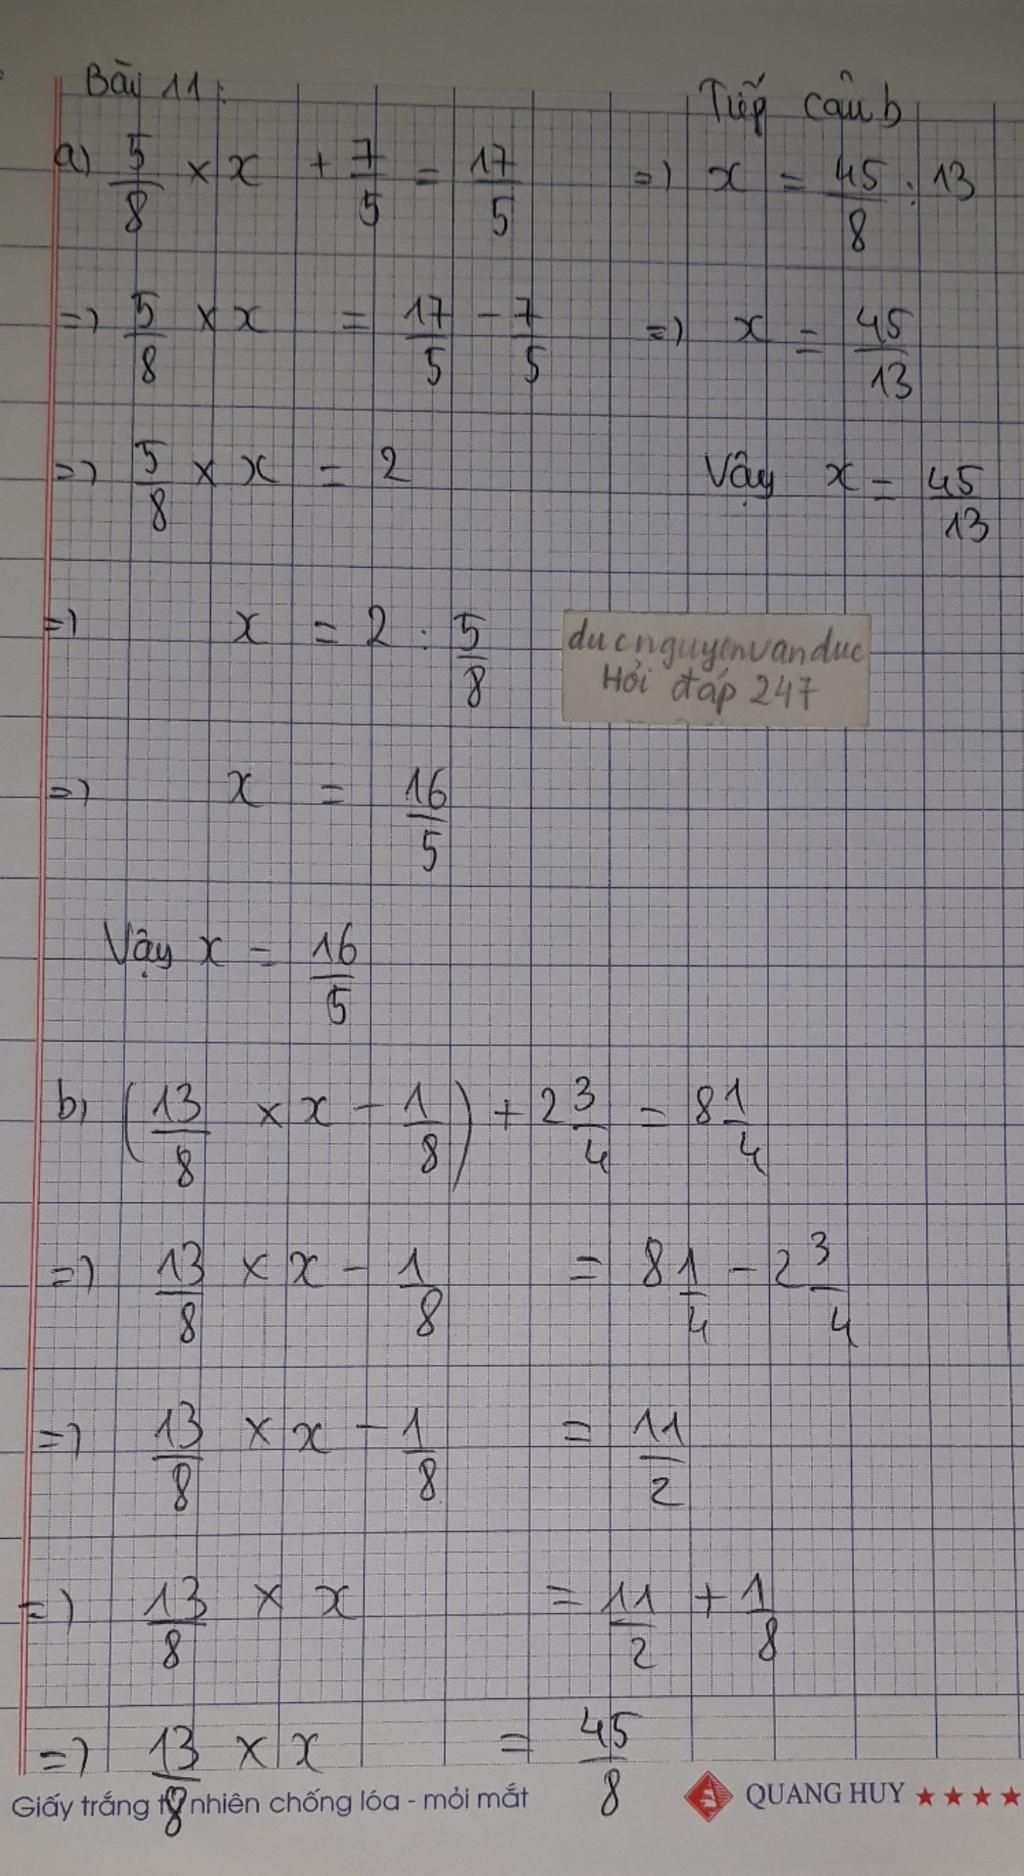 Bài 11:
a) 5/8 × x + 7/5 = 17/5
=> 5/8 × x = 17/5 - 7/5
=> 5/8 × x = 2
=> x = 2 : 5/8
=> x = 16/5
Vậy x = 16/5
b) (13/8 × x - 1/8) + 2 3/4 = 8 1/4
=> 13/8 × x - 1/8 = 8 1/4 - 2 3/4
=> 13/8 × x - 1/8 = 11/2
=> 13/8 × x = 11/2 + 1/8
=> 13/8 × x = 45/8
Tiếp câu b
=> x = 45/8 : 13
=> x = 45/13
Vậy x = 45/13
ducnguyenvanduc
Hỏi đáp 247
Giấy trắng tự nhiên chống lóa - mỏi mắt
QUANG HUY ★★★★